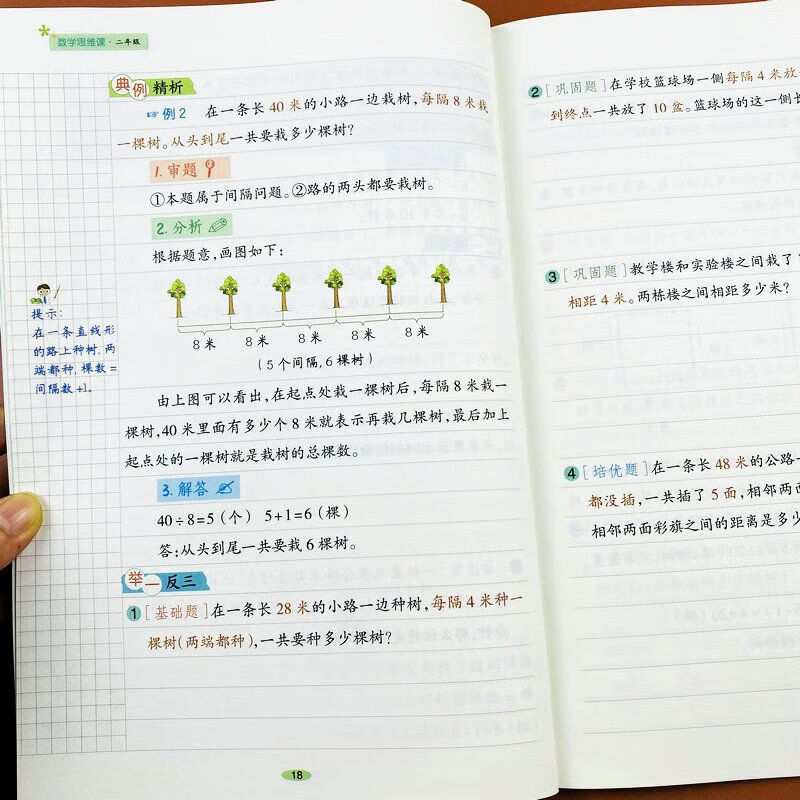 数学思维课·二年级
典例 精析
例2 在一条长 40 米的小路一边栽树,每隔 8 米栽
一棵树。从头到尾一共要栽多少棵树?
1. 审题
①本题属于间隔问题。②路的两头都要栽树。
2. 分析
根据题意,画图如下:
8 米 8 米 8 米 8 米 8 米
(5 个间隔,6 棵树)
提示:
在一条直线形
的路上种树,两
端都种,棵数=
间隔数+1。
由上图可以看出,在起点处栽一棵树后,每隔 8 米栽一
棵树,40 米里面有多少个 8 米就表示再栽几棵树,最后加上
起点处的一棵树就是栽树的总棵数。
3. 解答
40÷8=5(个) 5+1=6(棵)
答:从头到尾一共要栽 6 棵树。
举一 反三
1 [基础题]在一条长 28 米的小路一边种树,每隔 4 米种一
棵树(两端都种),一共要种多少棵树?
18
2 [巩固题]在学校篮球场一侧每隔 4 米放
到终点一共放了 10 盆。篮球场的这一侧长
3 [巩固题]教学楼和实验楼之间栽了
相距 4 米。两栋楼之间相距多少米?
4 [培优题]在一条长 48 米的公路一
都没插,一共插了 5 面,相邻两面
相邻两面彩旗之间的距离是多少